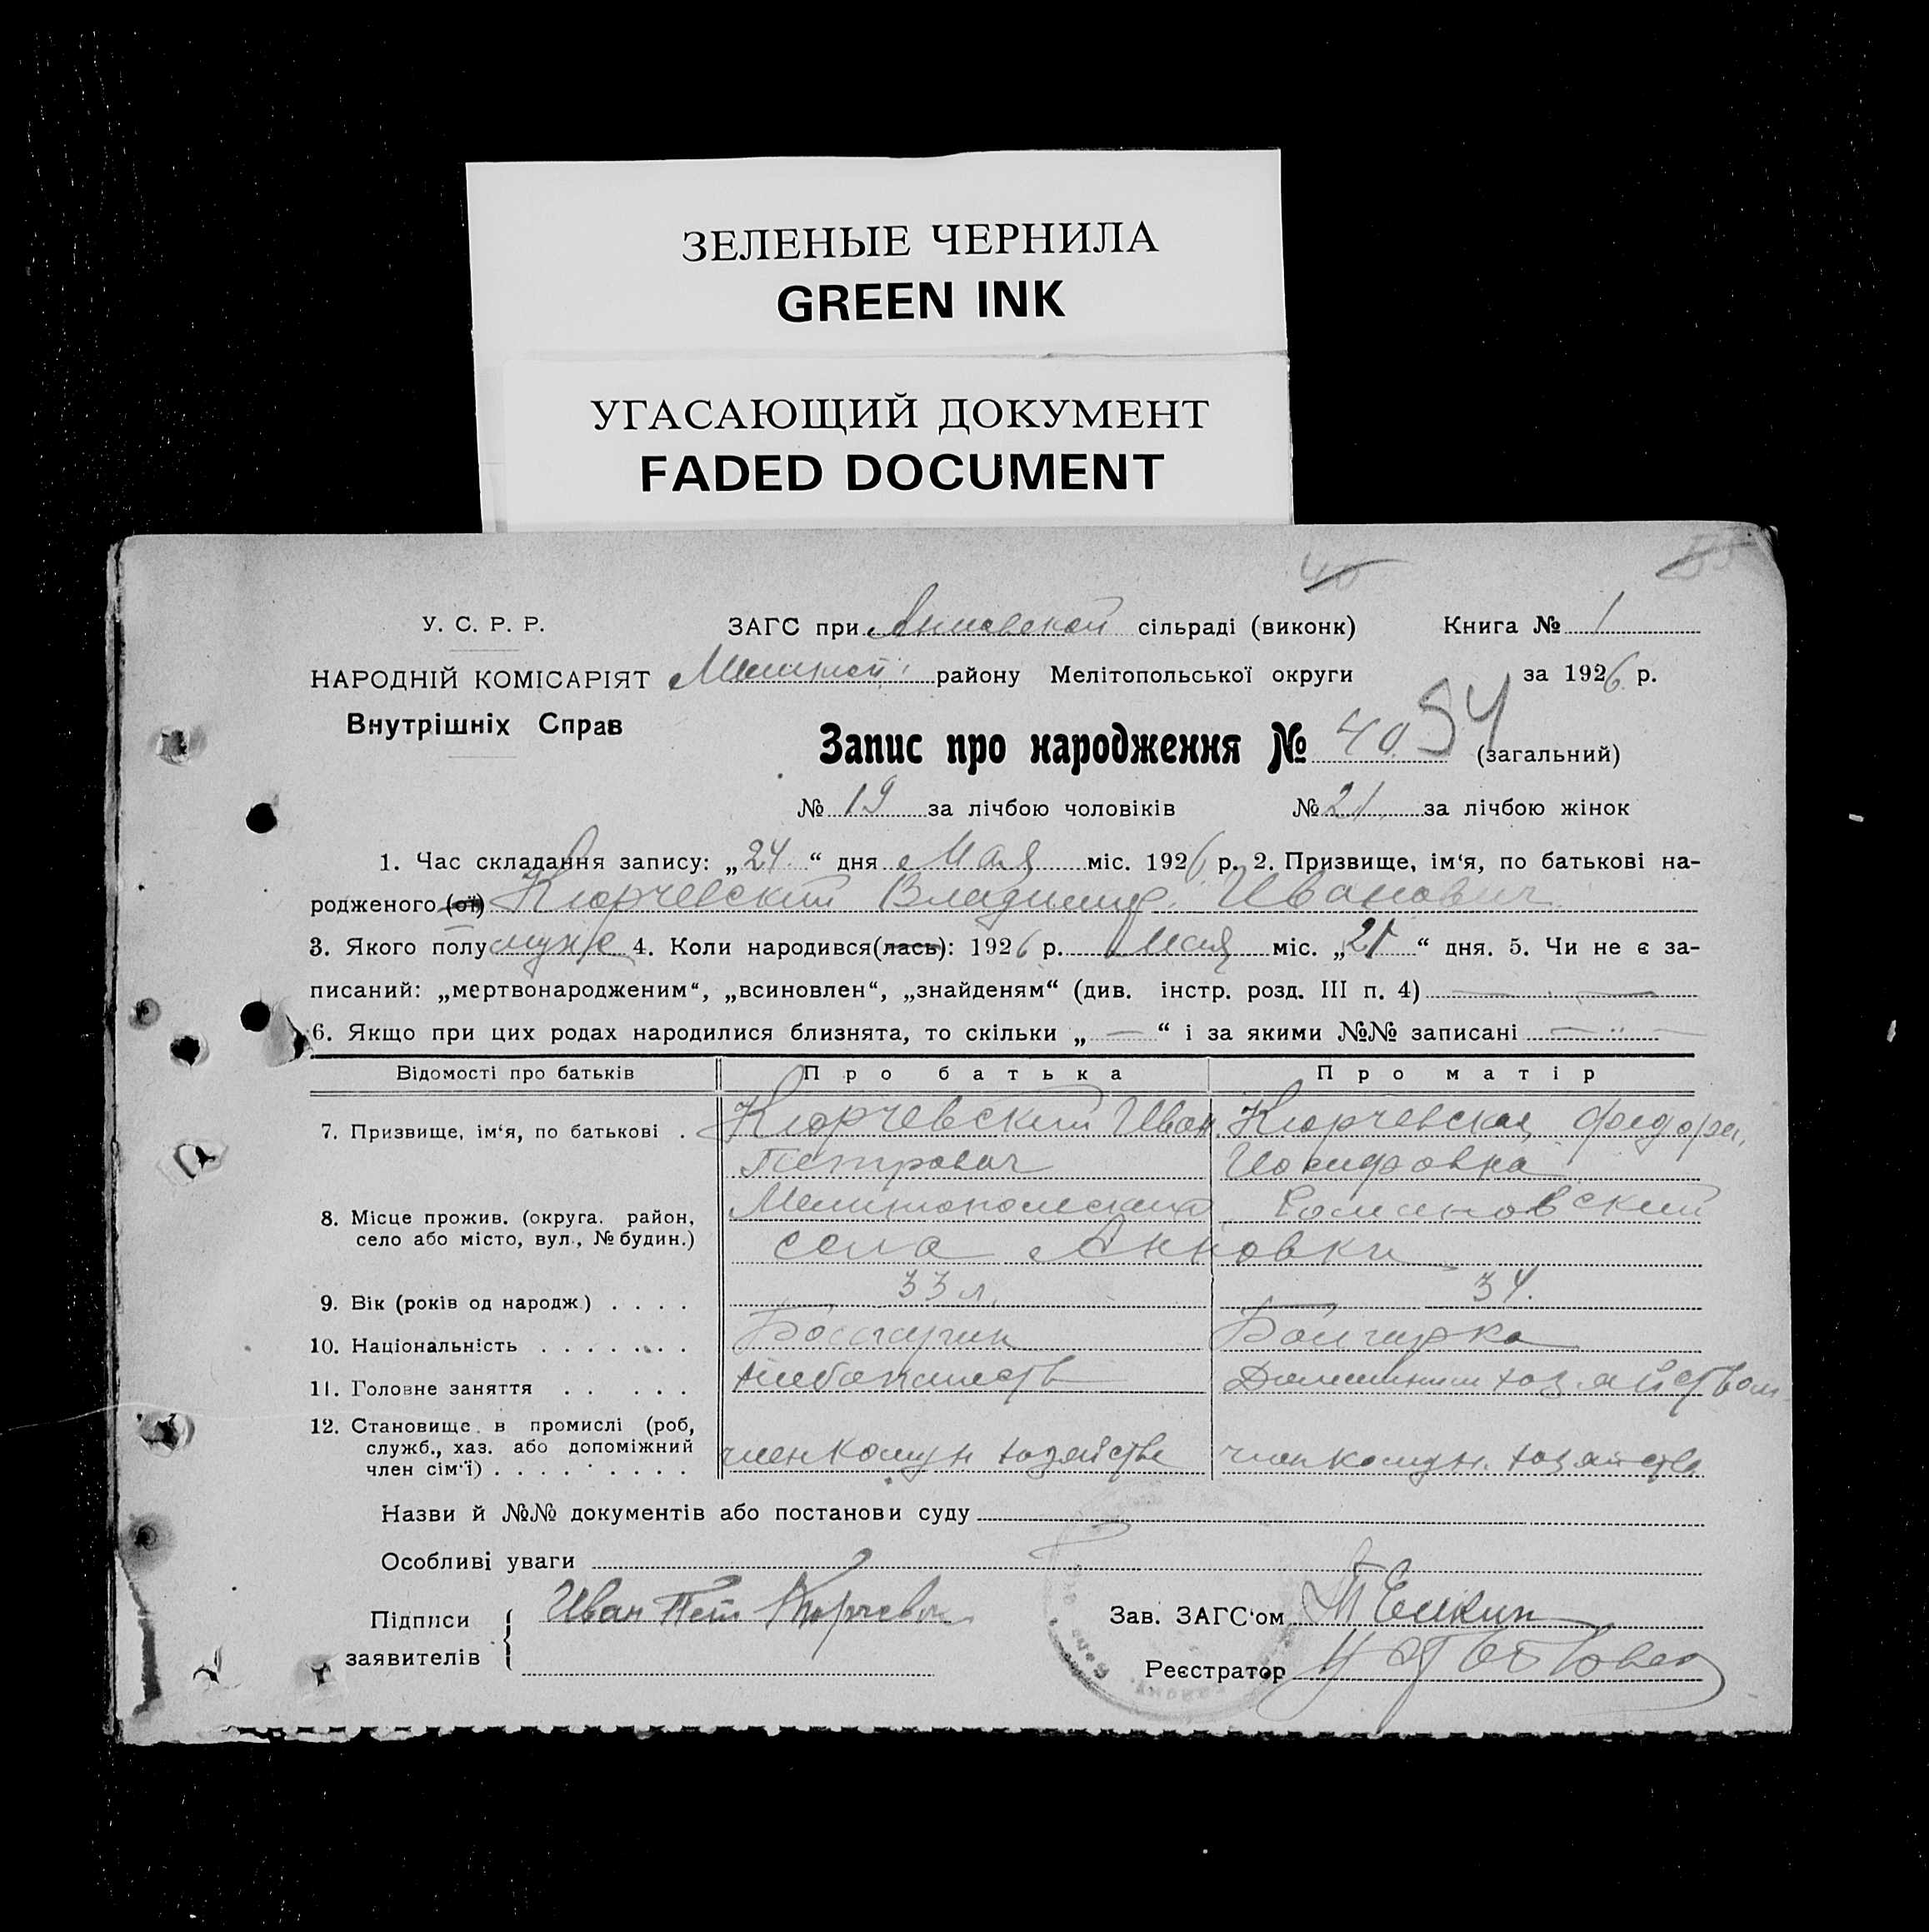 ЗЕЛЕНЫЕ ЧЕРНИЛА
GREEN INK
УГАСАЮЩИЙ ДОКУМЕНТ
FADED DOCUMENT
40
У. С. Р. Р. ЗАГС при Анновской сільраді (виконк) Книга № 1
НАРОДНІЙ КОМІСАРІЯТ Мелитоп. району Мелітопольської округи за 1926 р.
Внутрішніх Справ
Запис про народження № 40 54 (загальний)
№ 19 за лічбою чоловіків № 21 за лічбою жінок
1. Час складання запису: „24“ дня Мая міс. 1926 р. 2. Призвище, ім‘я, по батькові на-
родженого (ої) Кюрчевский Владимир Иванович
3. Якого полу муж 4. Коли народився(лась): 1926 р. Мая міс. „21“ дня. 5. Чи не є за-
писаний: „мертвонародженим“, „всиновлен“, „знайденям“ (див. інстр. розд. III п. 4)
6. Якщо при цих родах народилися близнята, то скільки „—“ і за якими №№ записані
Відомості про батьків Про батька Про матір
7. Призвище, ім‘я, по батькові . Кюрчевский Иван Кюрчевская Федора
Петрович Иосифовна
8. Місце прожив. (округа. район, Мелитопольский
село або місто, вул., № будин.) села Анновки
9. Вік (років од народж.) . . . . 33 л. 34.
10. Національність . . . . . . . Болгарин Болгарка
11. Головне заняття . . . . . хлебопашеств Домашним хозяйством
12. Становище в промислі (роб,
служб., хаз. або допоміжний член хозяйства член хозяйства
член сім‘ї) . . . . . . . . .
Назви й №№ документів або постанови суду
Особливі уваги
Підписи Иван Пет Кюрчевск Зав. ЗАГС‘ом
заявителів Реєстратор